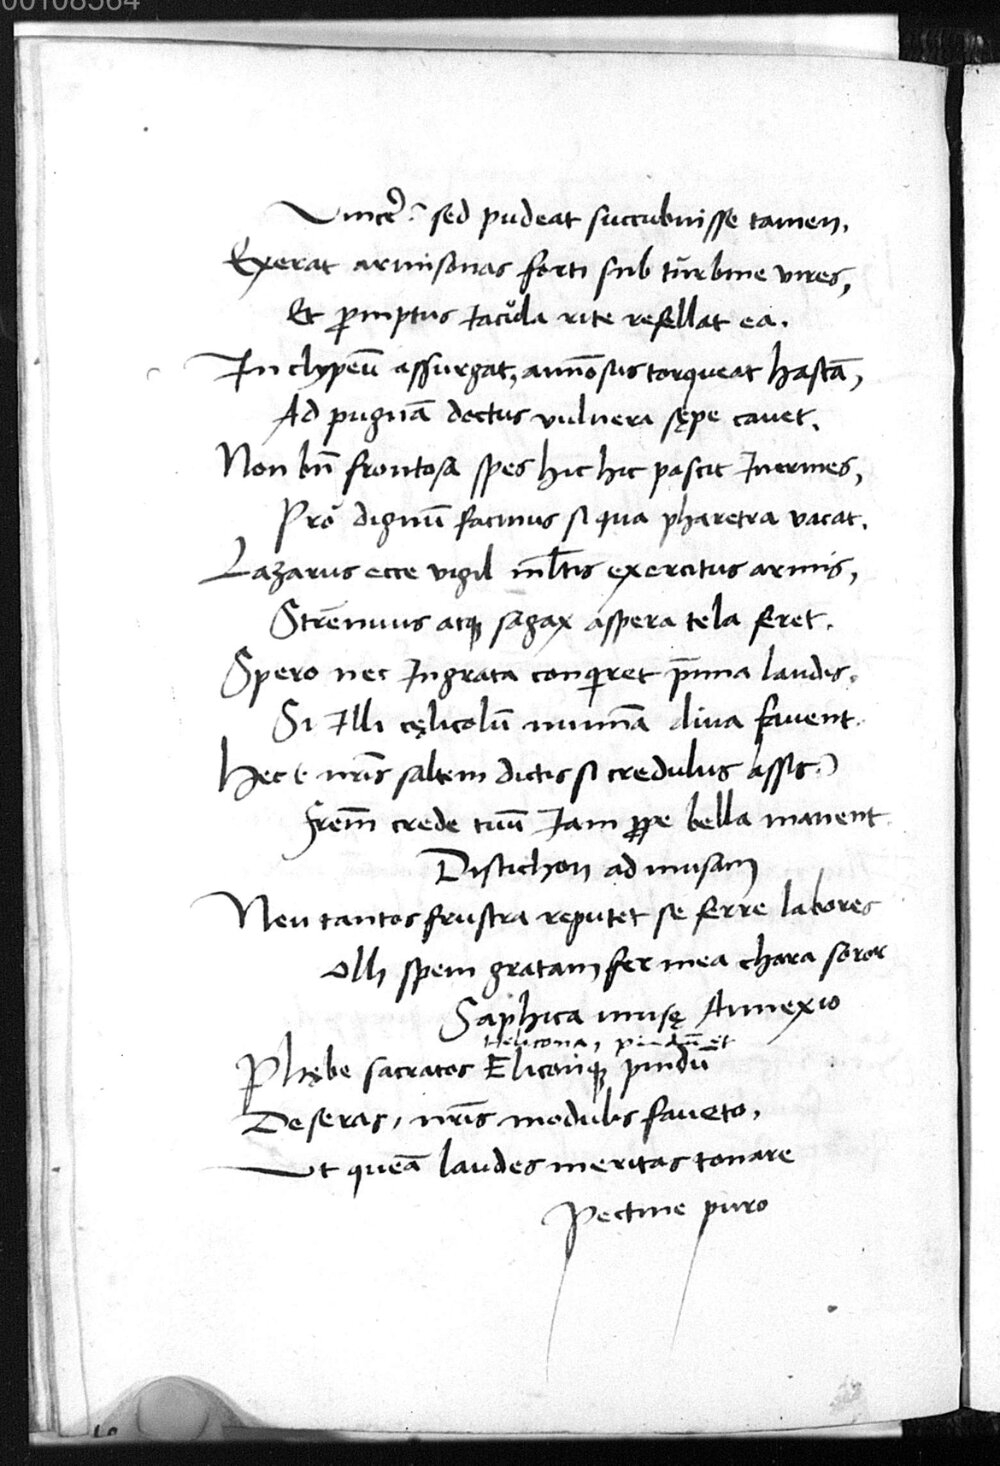 00108564
Vincer̃. sed pudeat succubuisse tamen.
Exerat armisonas forti sub turbine vires,
Et ꝓmptus Iacula rite refellat ea.
In clypeũ assurgat, annõsus torqueat hastã,
Ad pugnã doctus vulnera sępe cavet.
Non bñ frontosa spes hic hic pascit Inermes,
Prõ dignũ facinus si qua pharetra vacat.
Lazarus ecce vigil ml̃tis exercitus armis,
Strẽnuus atqꝫ sagax aspera tela feret.
Spero nec Ingrata conqiret p̃mia laudis.
Si Illi cęlicolũ numĩa diva favent.
Hec nr̃is saltem dictis si credulus assis)
frẽm crede tuũ Iam ꝓpe bella manent
Distichon ad musam
Neu tantos frustra reputet se ferre labores
Olli spem gratam fer mea chara soror
Saphica musę Annexio
Helicona, pindũ et
Phębe sacratos Eliconqꝫ pindũ
Deseras, nr̃is modulis faveto,
Ut queã laudes meritas tonare
Pectine puro